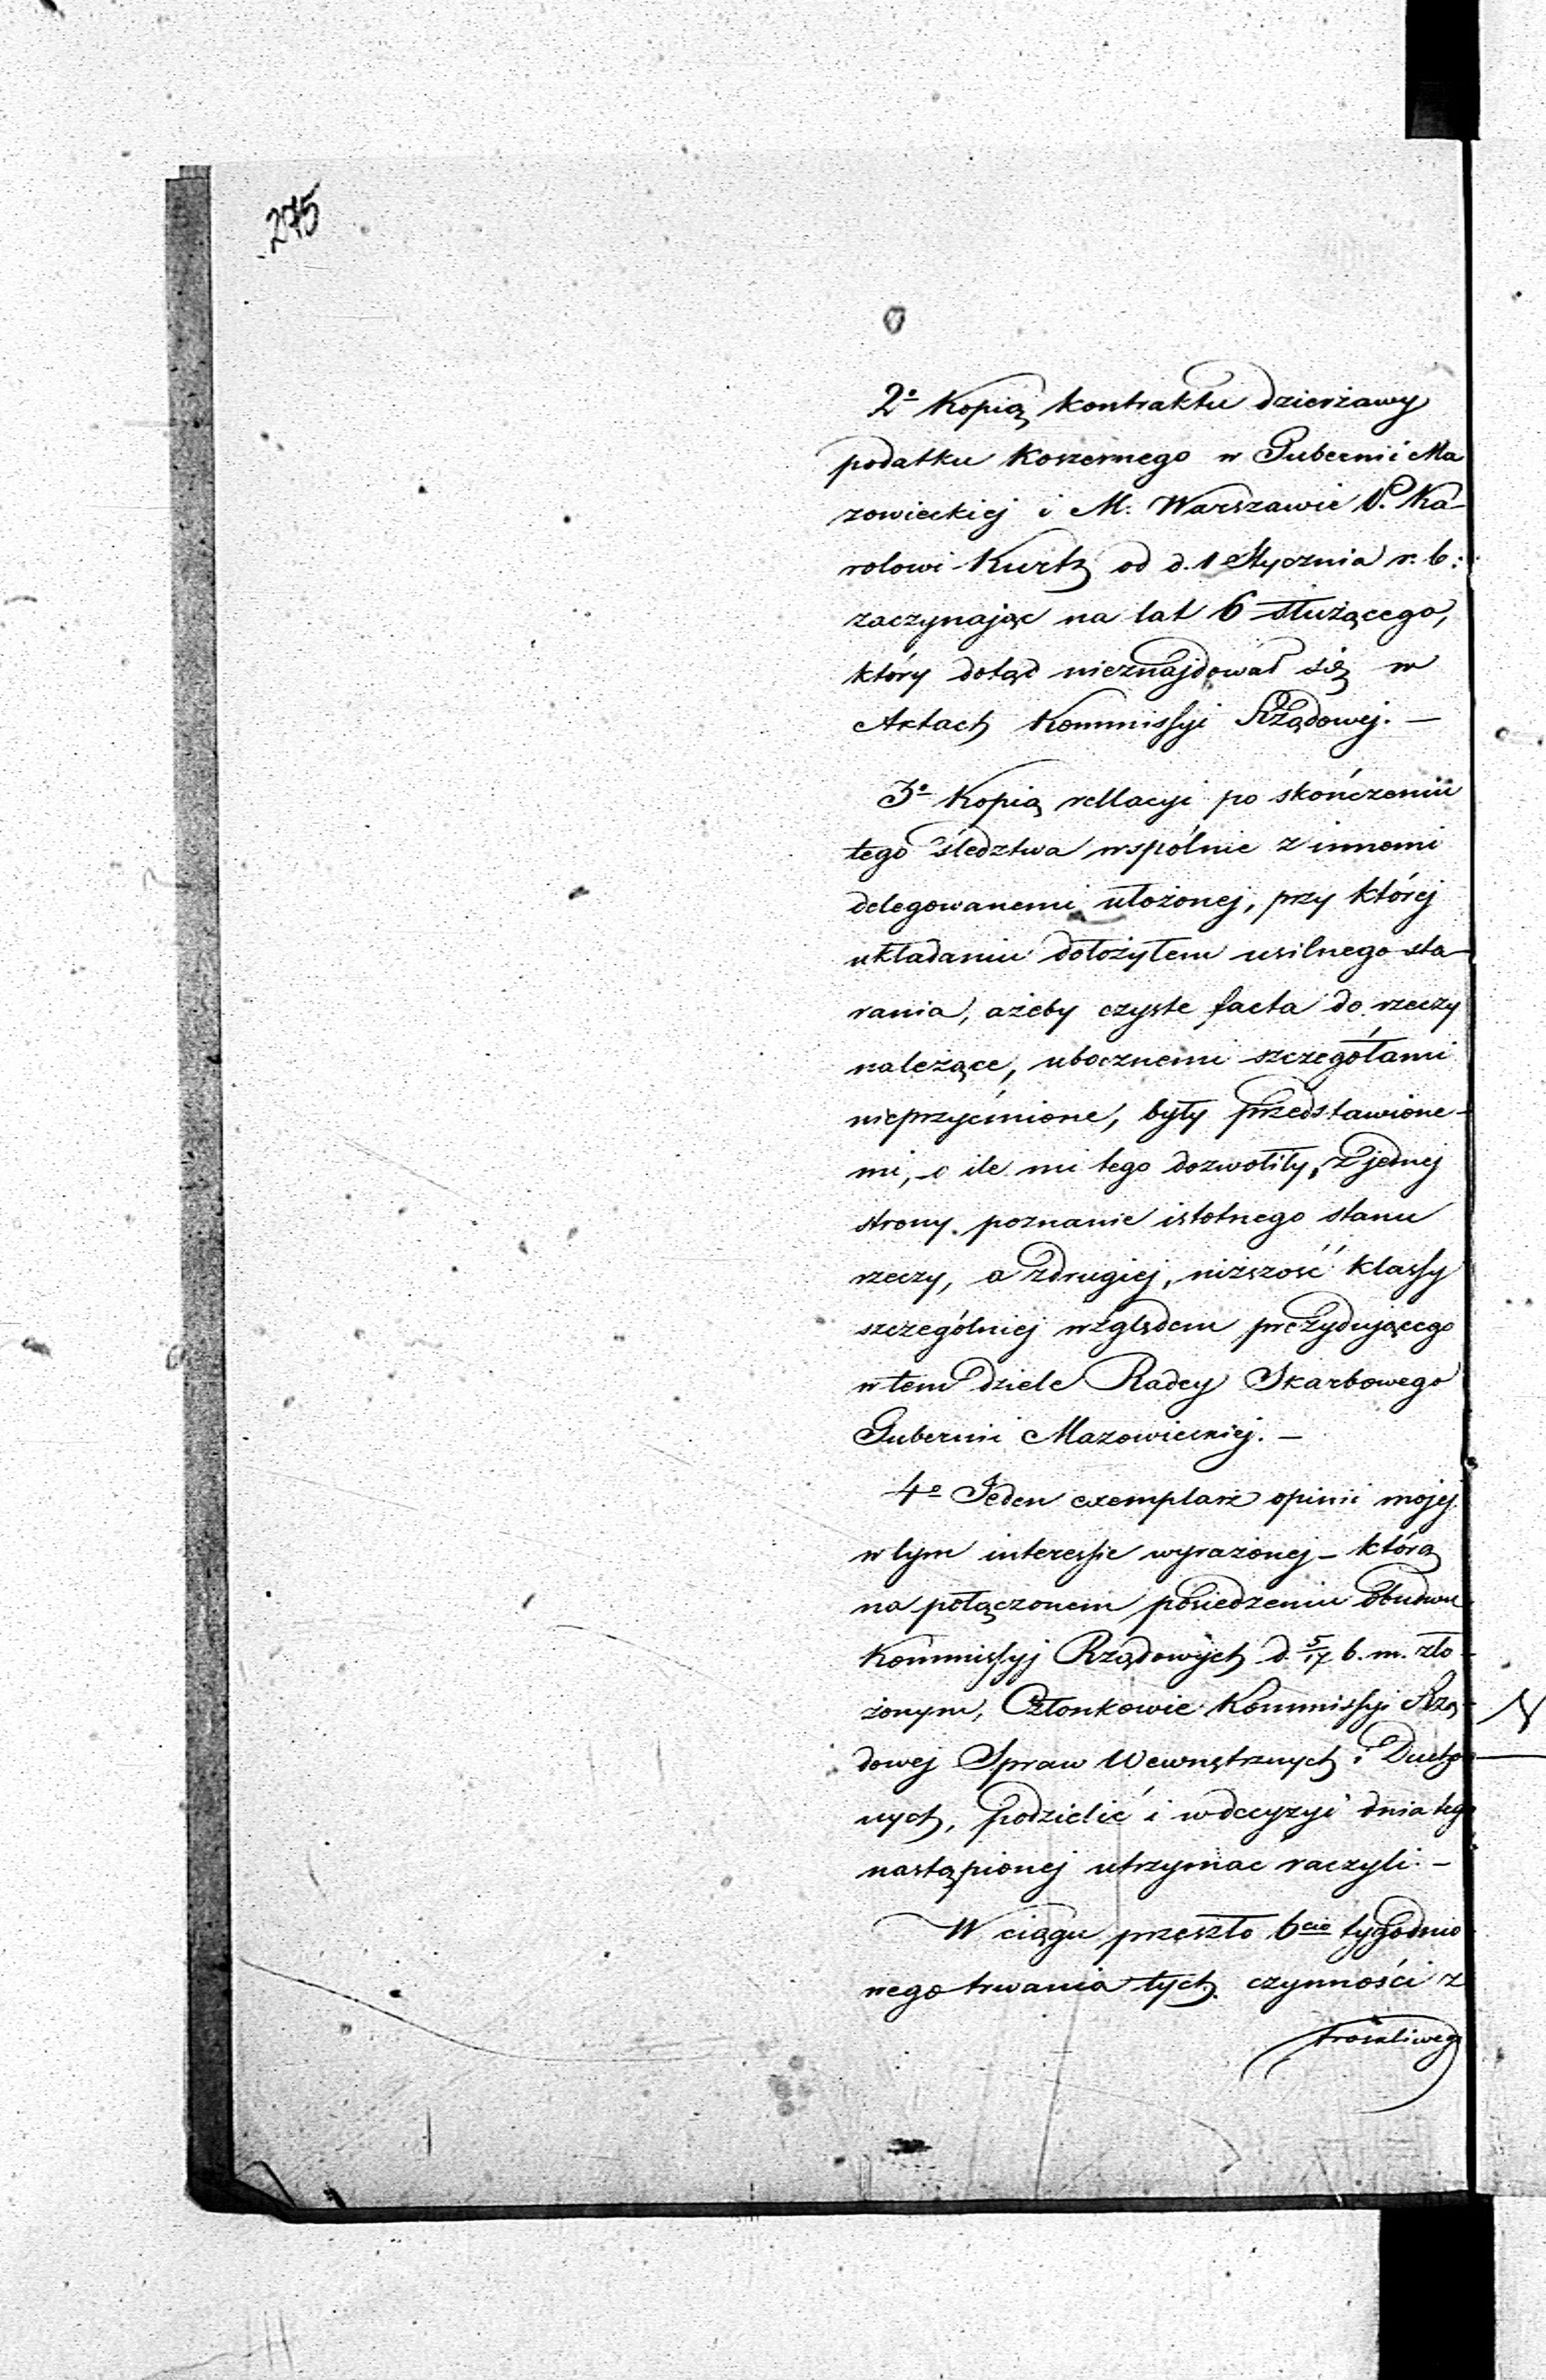 275
2º Kopią kontraktu dzierżawy
podatku Koszernego w Gubernii Ma
zowieckiej i M. Warszawie P. Ka-
rolowi Kurtz od d. 1 Stycznia r. b:
zaczynając na lat 6 służącego,
który dotąd nieznajdował się w
Aktach Kommissyi Rządowej. —
3º Kopią rellacyi po skończeniu
tego śledztwa wspólnie z innemi
delegowanemi ułożonej, przy której
układaniu dołożyłem usilnego sta-
rania, ażeby czyste facta do rzeczy
należące, ubocznemi szczegółami
nieprzyćmione, były przedstawione-
mi, o ile mi tego dozwoliły, z jednej
strony poznanie istotnego stanu
rzeczy, a zdrugiej, niższość klassy
szczególniej względem prezydującego
w tem dziele Radcy Skarbowego
Gubernii Mazowieckiej. —
4º Jeden exemplarz opinii mojej
w tym interessie wyrażonej – którą
na połączonem posiedzeniu obudwu
Kommissyj Rządowych d. 5/17 b. m. zło-
żonym, Członkowie Kommissyi Rzą-
dowej Spraw Wewnętrznych i Ducho
nych, podzielić i w decyzyi dnia tego
nastąpionej utrzymac raczyli. —
W ciągu przeszło 6cio tygodnio
wego trwania tych czynności z
troskliwego